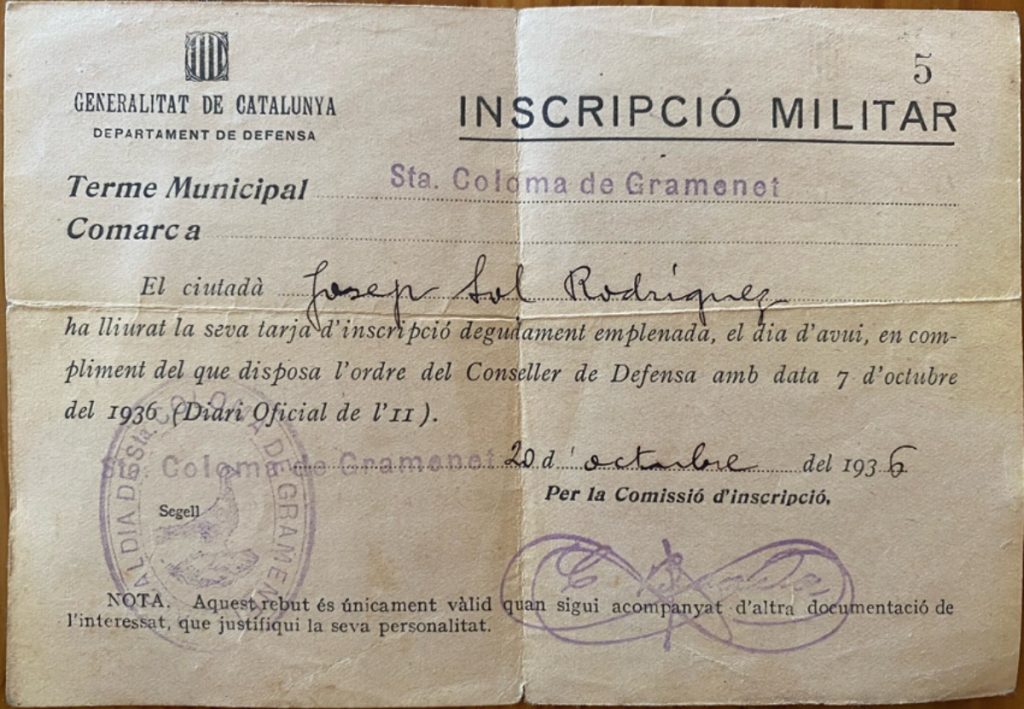 5
GENERALITAT DE CATALUNYA
DEPARTAMENT DE DEFENSA
INSCRIPCIÓ MILITAR
Terme Municipal Sta. Coloma de Gramenet
Comarca
El ciutadà Josep Sol Rodríguez
ha lliurat la seva tarja d'inscripció degudament emplenada, el dia d'avui, en com-
pliment del que disposa l'ordre del Conseller de Defensa amb data 7 d'octubre
del 1936 (Diari Oficial de l'11).
Sta. Coloma de Gramenet 20 d'octubre del 1936
Per la Comissió d'inscripció,
ALDIA DE Sta COLOMA DE GRAMEN
Segell
NOTA. Aquest rebut és únicament vàlid quan sigui acompanyat d'altra documentació de
l'interessat, que justifiqui la seva personalitat.